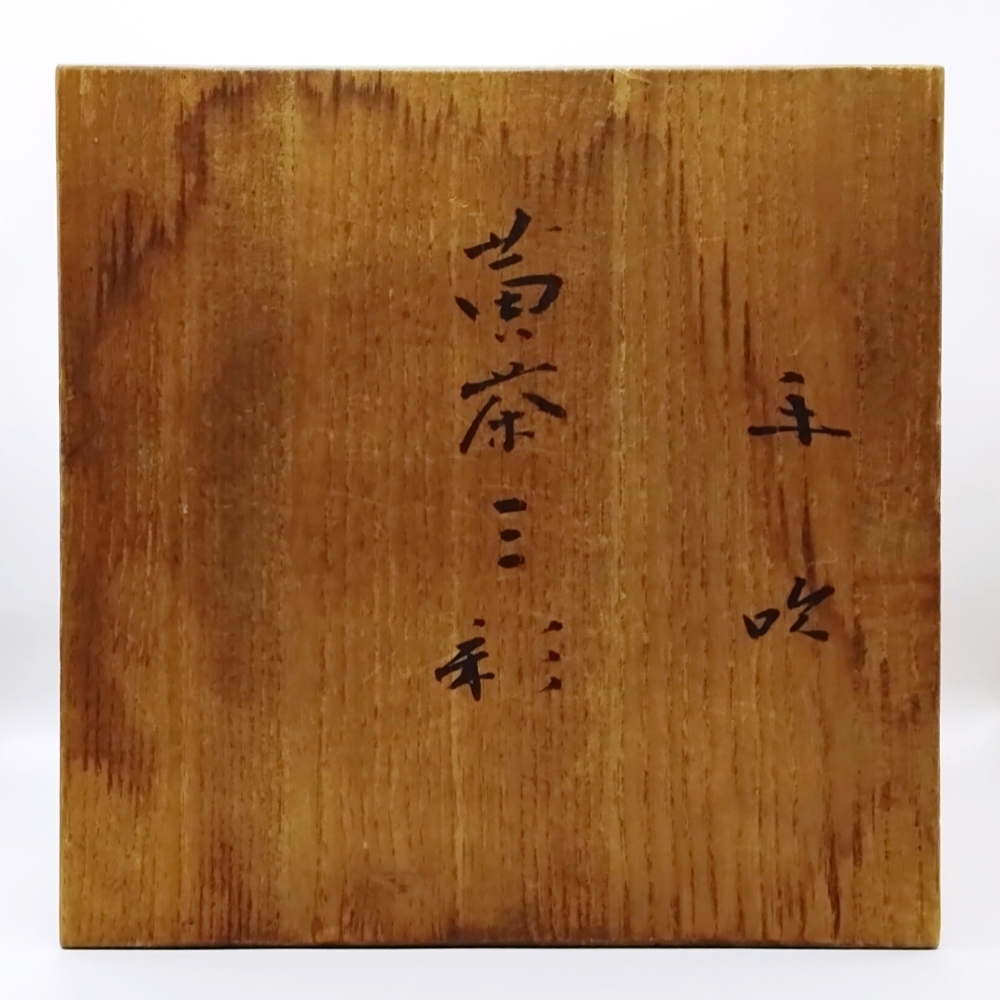 手吹
黄茶三彩